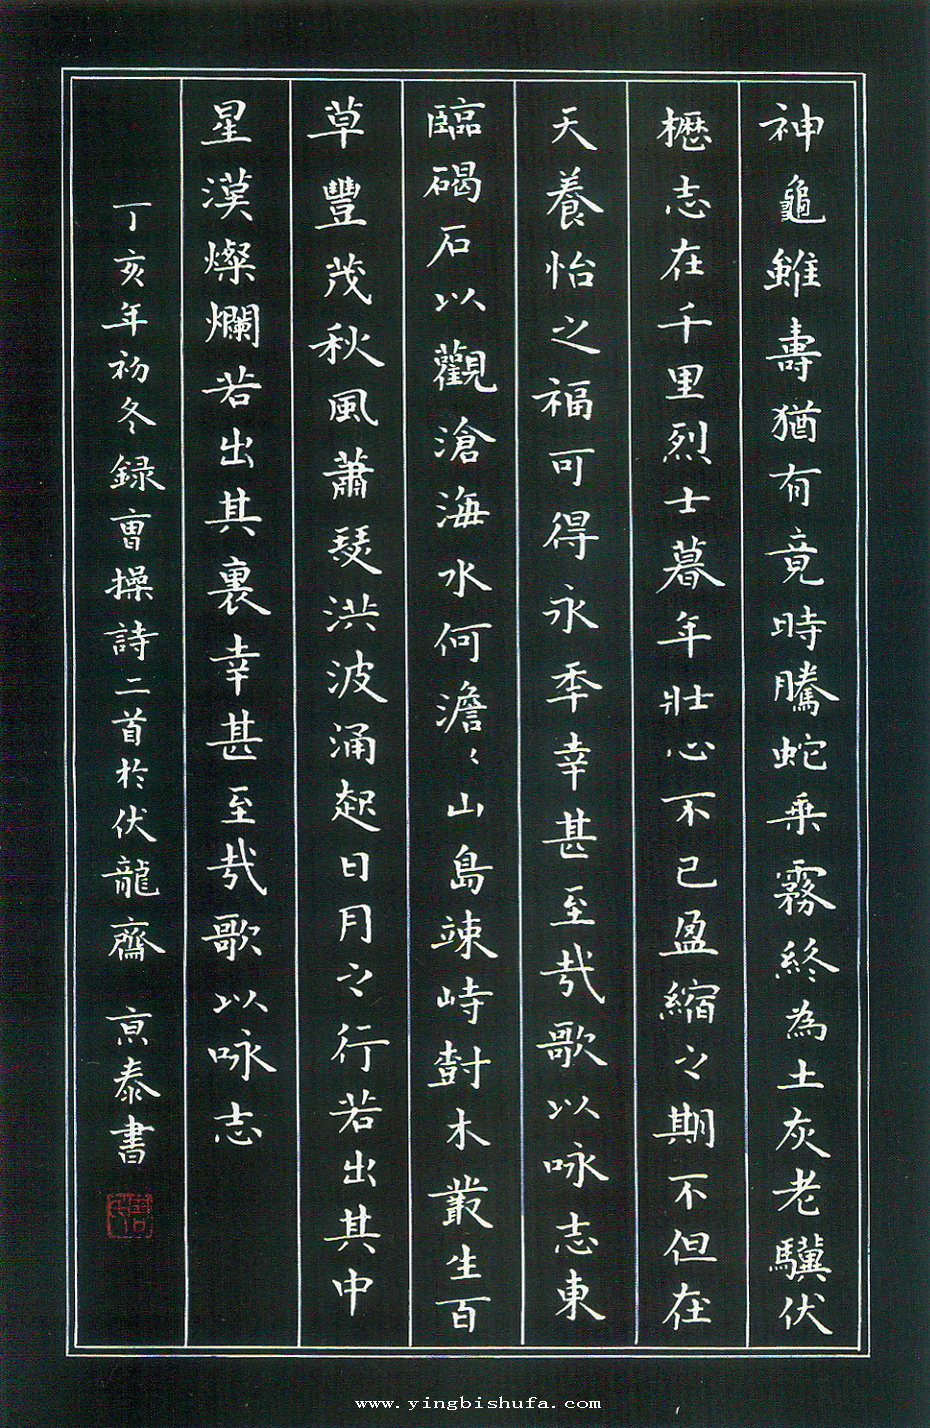 神龜雖壽猶有竟時騰蛇乗霧終為土灰老驥伏
櫪志在千里烈士暮年壯心不已盈縮之期不但在
天養怡之福可得永年幸甚至哉歌以咏志東
臨碣石以觀滄海水何澹〻山島竦峙樹木叢生百
草豐茂秋風蕭瑟洪波涌起日月之行若出其中
星漢燦爛若出其裏幸甚至哉歌以咏志
丁亥年初冬録曹操詩二首於伏龍齋 京泰書
www.yingbishufa.com